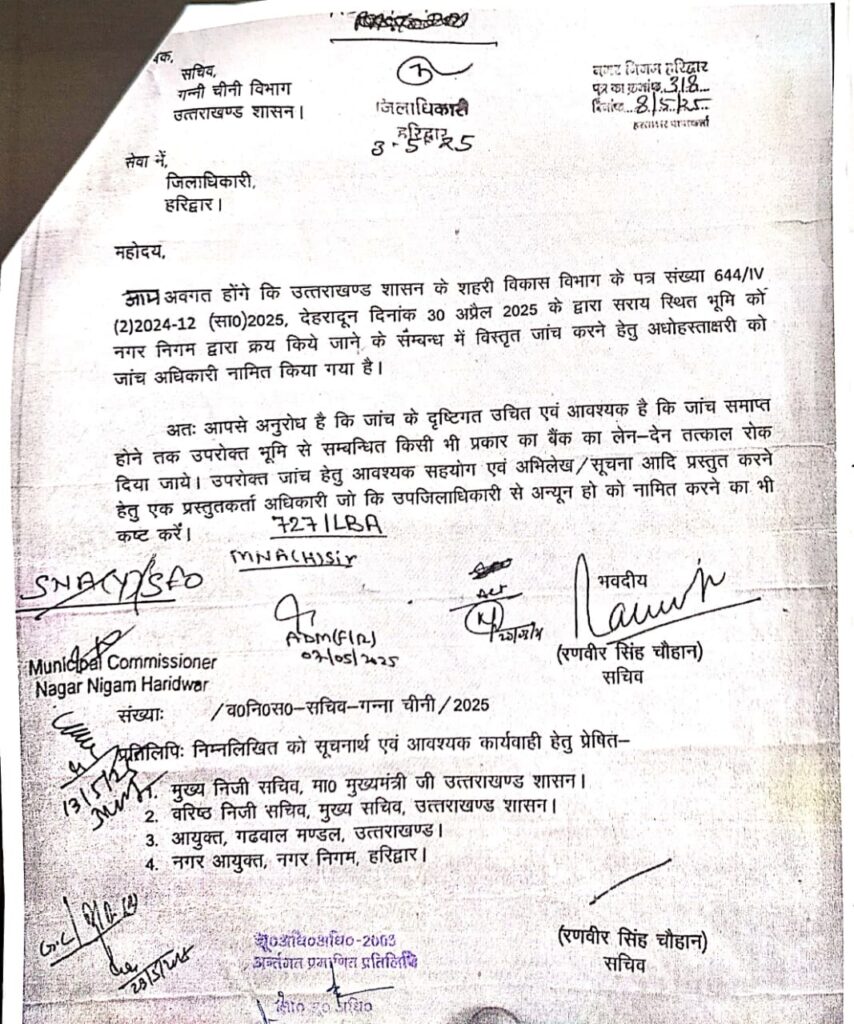 सचिव,
गन्नी चीनी विभाग
उत्तराखण्ड शासन।
जिलाधिकारी
हरिद्वार
3-5-25
नगर निगम हरिद्वार
पत्र का क्रमांक..318..
दिनांक...8/5/25
सेवा में,
जिलाधिकारी,
हरिद्वार।
महोदय,
आप अवगत होंगे कि उत्तराखण्ड शासन के शहरी विकास विभाग के पत्र संख्या 644/IV
(2)2024-12 (सा0)2025, देहरादून दिनांक 30 अप्रैल 2025 के द्वारा सराय स्थित भूमि को
नगर निगम द्वारा क्रय किये जाने के सम्बन्ध में विस्तृत जांच करने हेतु अधोहस्ताक्षरी को
जांच अधिकारी नामित किया गया है।
अतः आपसे अनुरोध है कि जांच के दृष्टिगत उचित एवं आवश्यक है कि जांच समाप्त
होने तक उपरोक्त भूमि से सम्बन्धित किसी भी प्रकार का बैंक का लेन-देन तत्काल रोक
दिया जाये। उपरोक्त जांच हेतु आवश्यक सहयोग एवं अभिलेख/सूचना आदि प्रस्तुत करने
हेतु एक प्रस्तुतकर्ता अधिकारी जो कि उपजिलाधिकारी से अन्यून हो को नामित करने का भी
कष्ट करें।
727/LBA
MNA(H)Sir
SNA(Y)/SFO
ADM(F/R)
07/05/2025
भवदीय
(रणवीर सिंह चौहान)
सचिव
Municipal Commissioner
Nagar Nigam Haridwar
संख्याः /व0नि0स0-सचिव-गन्ना चीनी/2025
प्रतिलिपिः निम्नलिखित को सूचनार्थ एवं आवश्यक कार्यवाही हेतु प्रेषित-
1. मुख्य निजी सचिव, मा0 मुख्यमंत्री जी उत्तराखण्ड शासन।
2. वरिष्ठ निजी सचिव, मुख्य सचिव, उत्तराखण्ड शासन।
3. आयुक्त, गढवाल मण्डल, उत्तराखण्ड।
4. नगर आयुक्त, नगर निगम, हरिद्वार।
13/5/25
(रणवीर सिंह चौहान)
सचिव
सू0अधि0अधि0-2003
अन्तर्गत प्रमाणित प्रतिलिपि